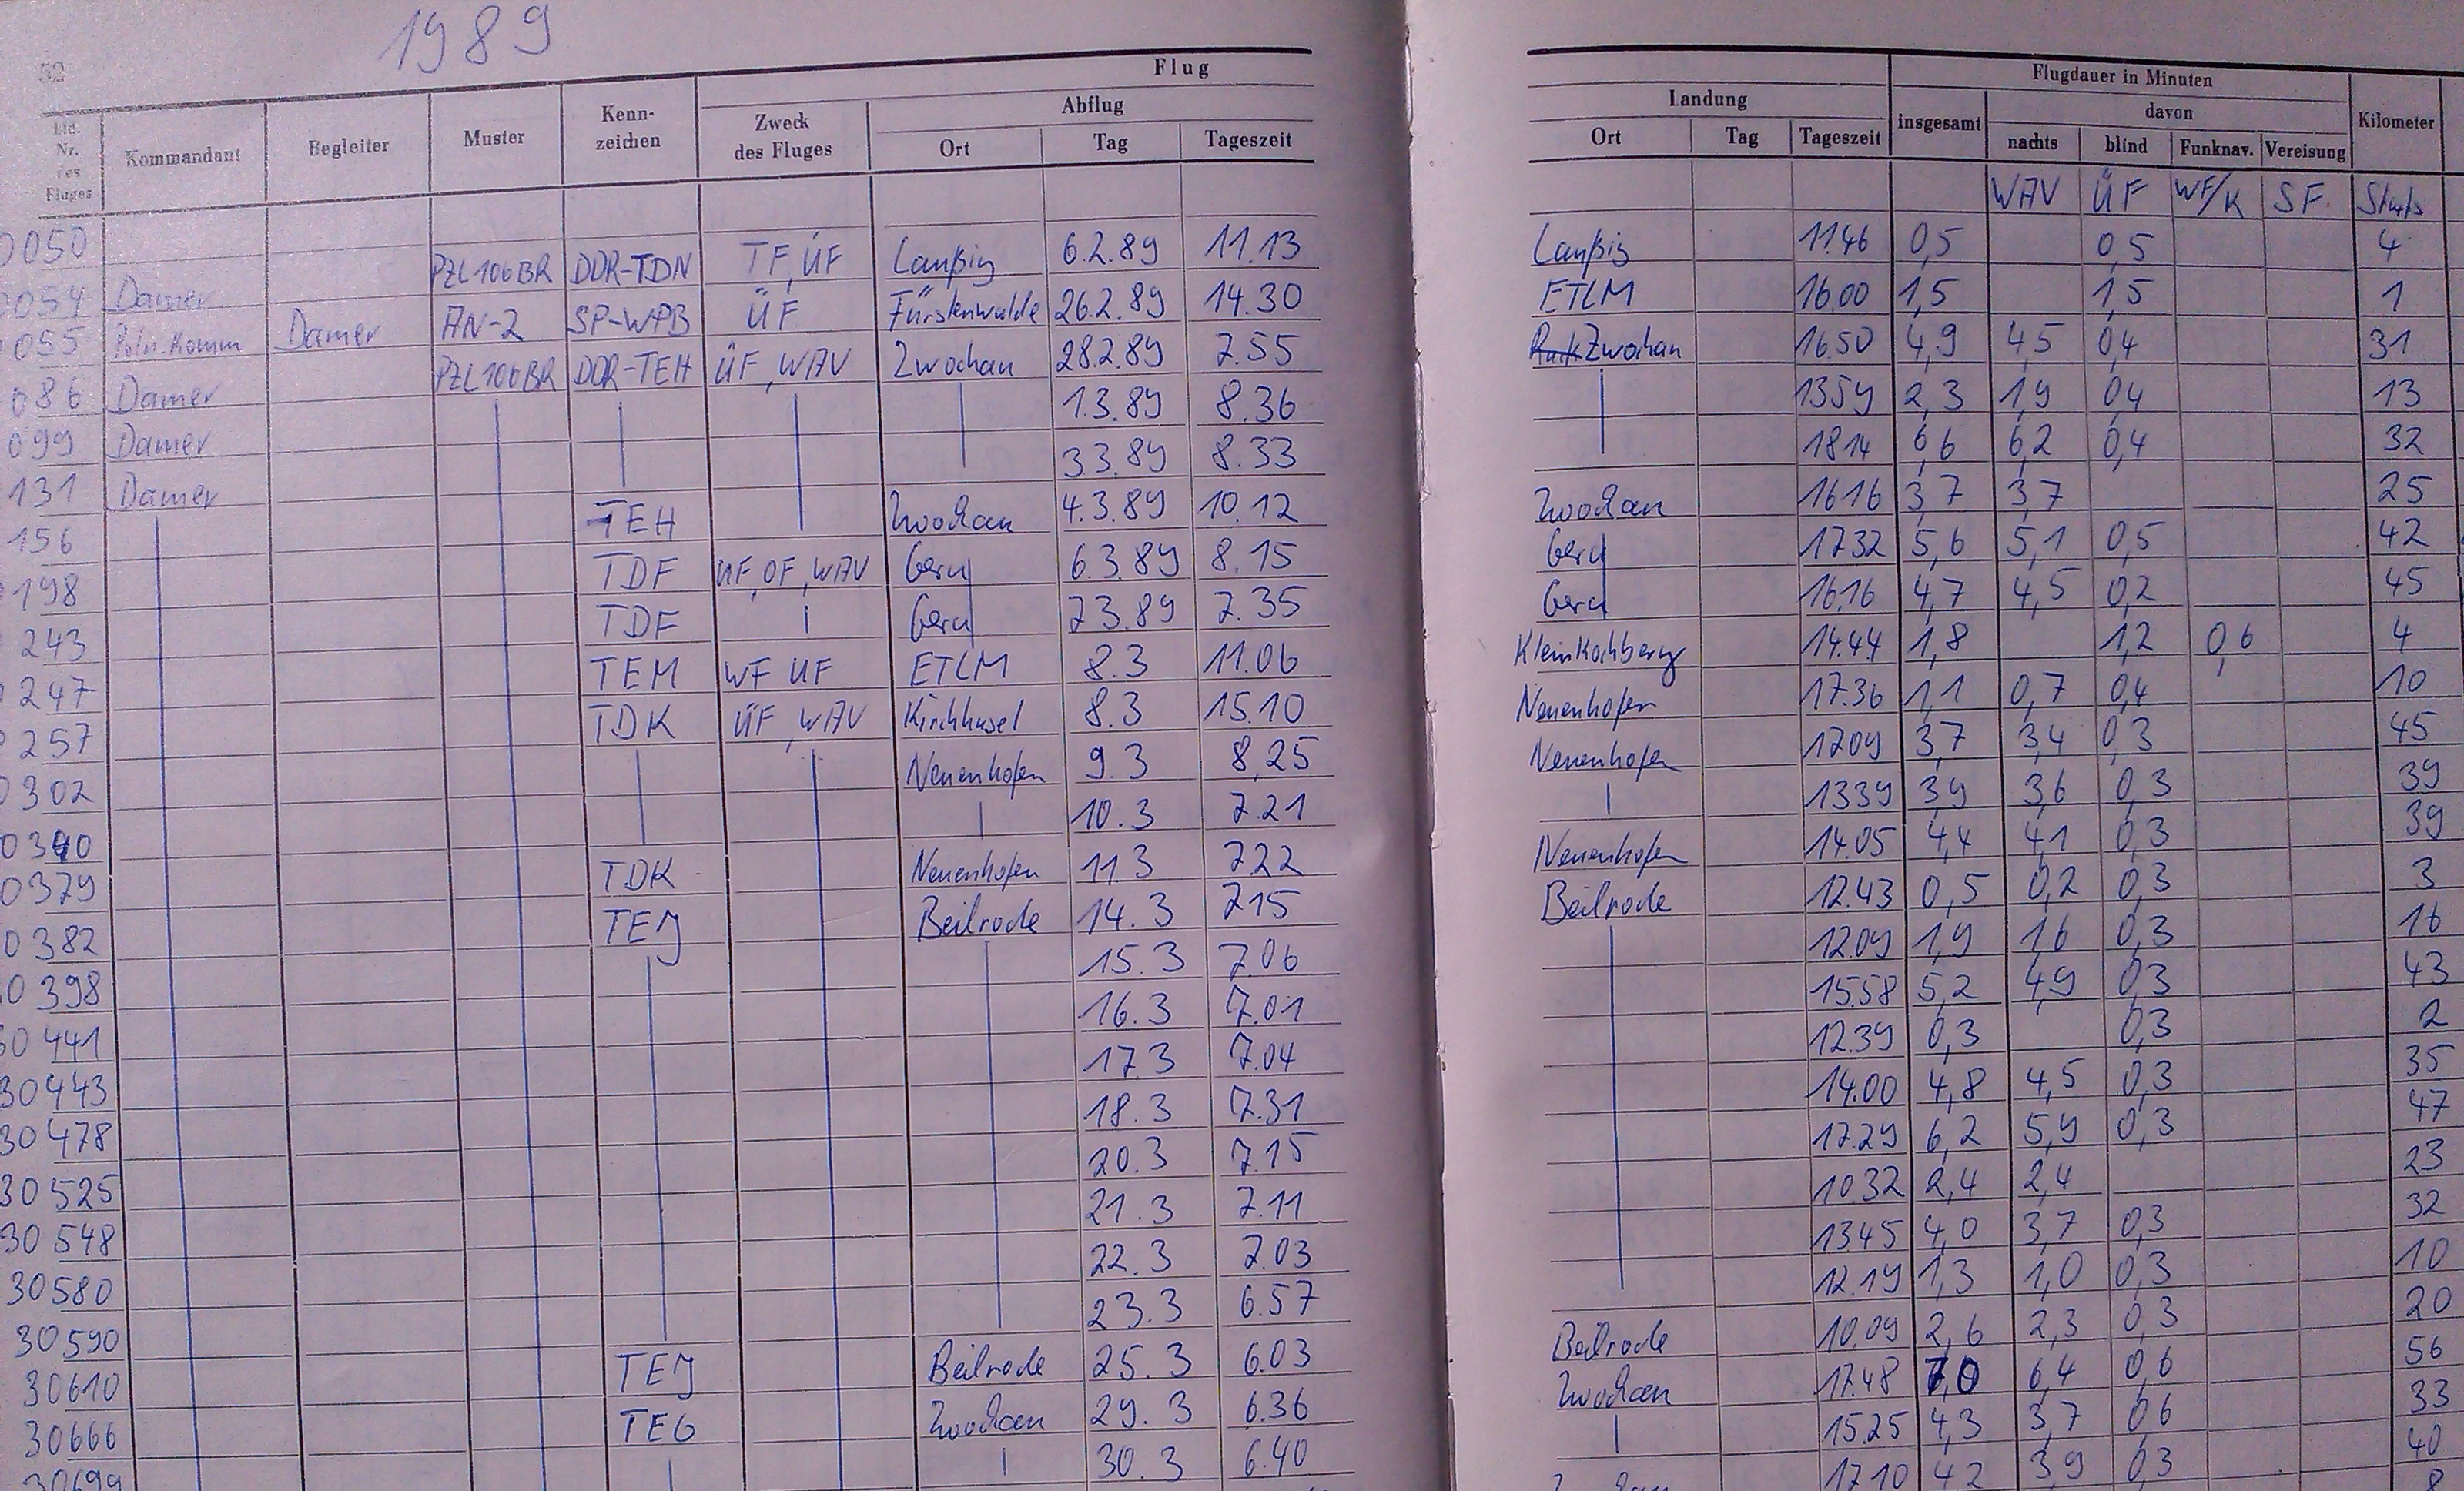 1989
52
Flug
Lfd. Nr. des Fluges Kommandant Begleiter Muster Kenn-zeichen Zweck des Fluges Abflug Ort Tag Tageszeit
Landung Ort Tag Tageszeit Flugdauer in Minuten insgesamt davon nachts blind Funknav. Vereisung Kilometer
0050 WAV ÜF WF/K SF. Starts
0054 Damer PZL106BR DDR-TDN TF, ÜF Laußig 6.2.89 11.13 Laußig 11.46 0,5 0,5 4
055 Poln. Komm Damer AN-2 SP-WPB ÜF Fürstenwalde 26.2.89 14.30 ETLM 16.00 1,5 1,5 1
086 Damer PZL106BR DDR-TEH ÜF, WAV Zwochau 28.2.89 7.55 Zwochau 16.50 4,9 4,5 0,4 31
099 Damer 1.3.89 8.36 13.59 2,3 1,9 0,4 13
131 Damer 3.3.89 8.33 18.14 6,6 6,2 0,4 32
156 TEH Zwochau 4.3.89 10.12 Zwochau 16.16 3,7 3,7 25
198 TDF ÜF, OF, WAV Gera 6.3.89 8.15 Gera 17.32 5,6 5,1 0,5 42
243 TDF Gera 7.3.89 7.35 Gera 16.16 4,7 4,5 0,2 45
247 TEM WF ÜF ETLM 8.3 11.06 Kleinkochberg 14.44 1,8 1,2 0,6 4
257 TDK ÜF, WAV Kirchhasel 8.3 15.10 Neuenhofen 17.36 1,1 0,7 0,4 10
302 Neuenhofen 9.3 8,25 Neuenhofen 17.09 3,7 3,4 0,3 45
0340 10.3 7.21 13.39 3,9 3,6 0,3 39
0379 TDK Neuenhofen 11.3 7.22 Neuenhofen 14.05 4,4 4,1 0,3 39
0382 TEJ Beilrode 14.3 7.15 Beilrode 12.43 0,5 0,2 0,3 3
0398 15.3 7.06 12.09 1,9 1,6 0,3 16
0441 16.3 7.01 15.58 5,2 4,9 0,3 43
30443 17.3 7.04 12.39 0,3 0,3 2
30478 18.3 7.31 14.00 4,8 4,5 0,3 35
30525 20.3 7.15 17.29 6,2 5,9 0,3 47
30548 21.3 7.11 10.32 2,4 2,4 23
30580 22.3 7.03 13.45 4,0 3,7 0,3 32
30590 23.3 6.57 12.19 1,3 1,0 0,3 10
30610 TEJ Beilrode 25.3 6.03 Beilrode 10.09 2,6 2,3 0,3 20
30666 TEG Zwochau 29.3 6.36 Zwochau 17.48 7,0 6,4 0,6 56
30699 30.3 6.40 15.25 4,3 3,7 0,6 33
17.10 4,2 3,9 0,3 40
8